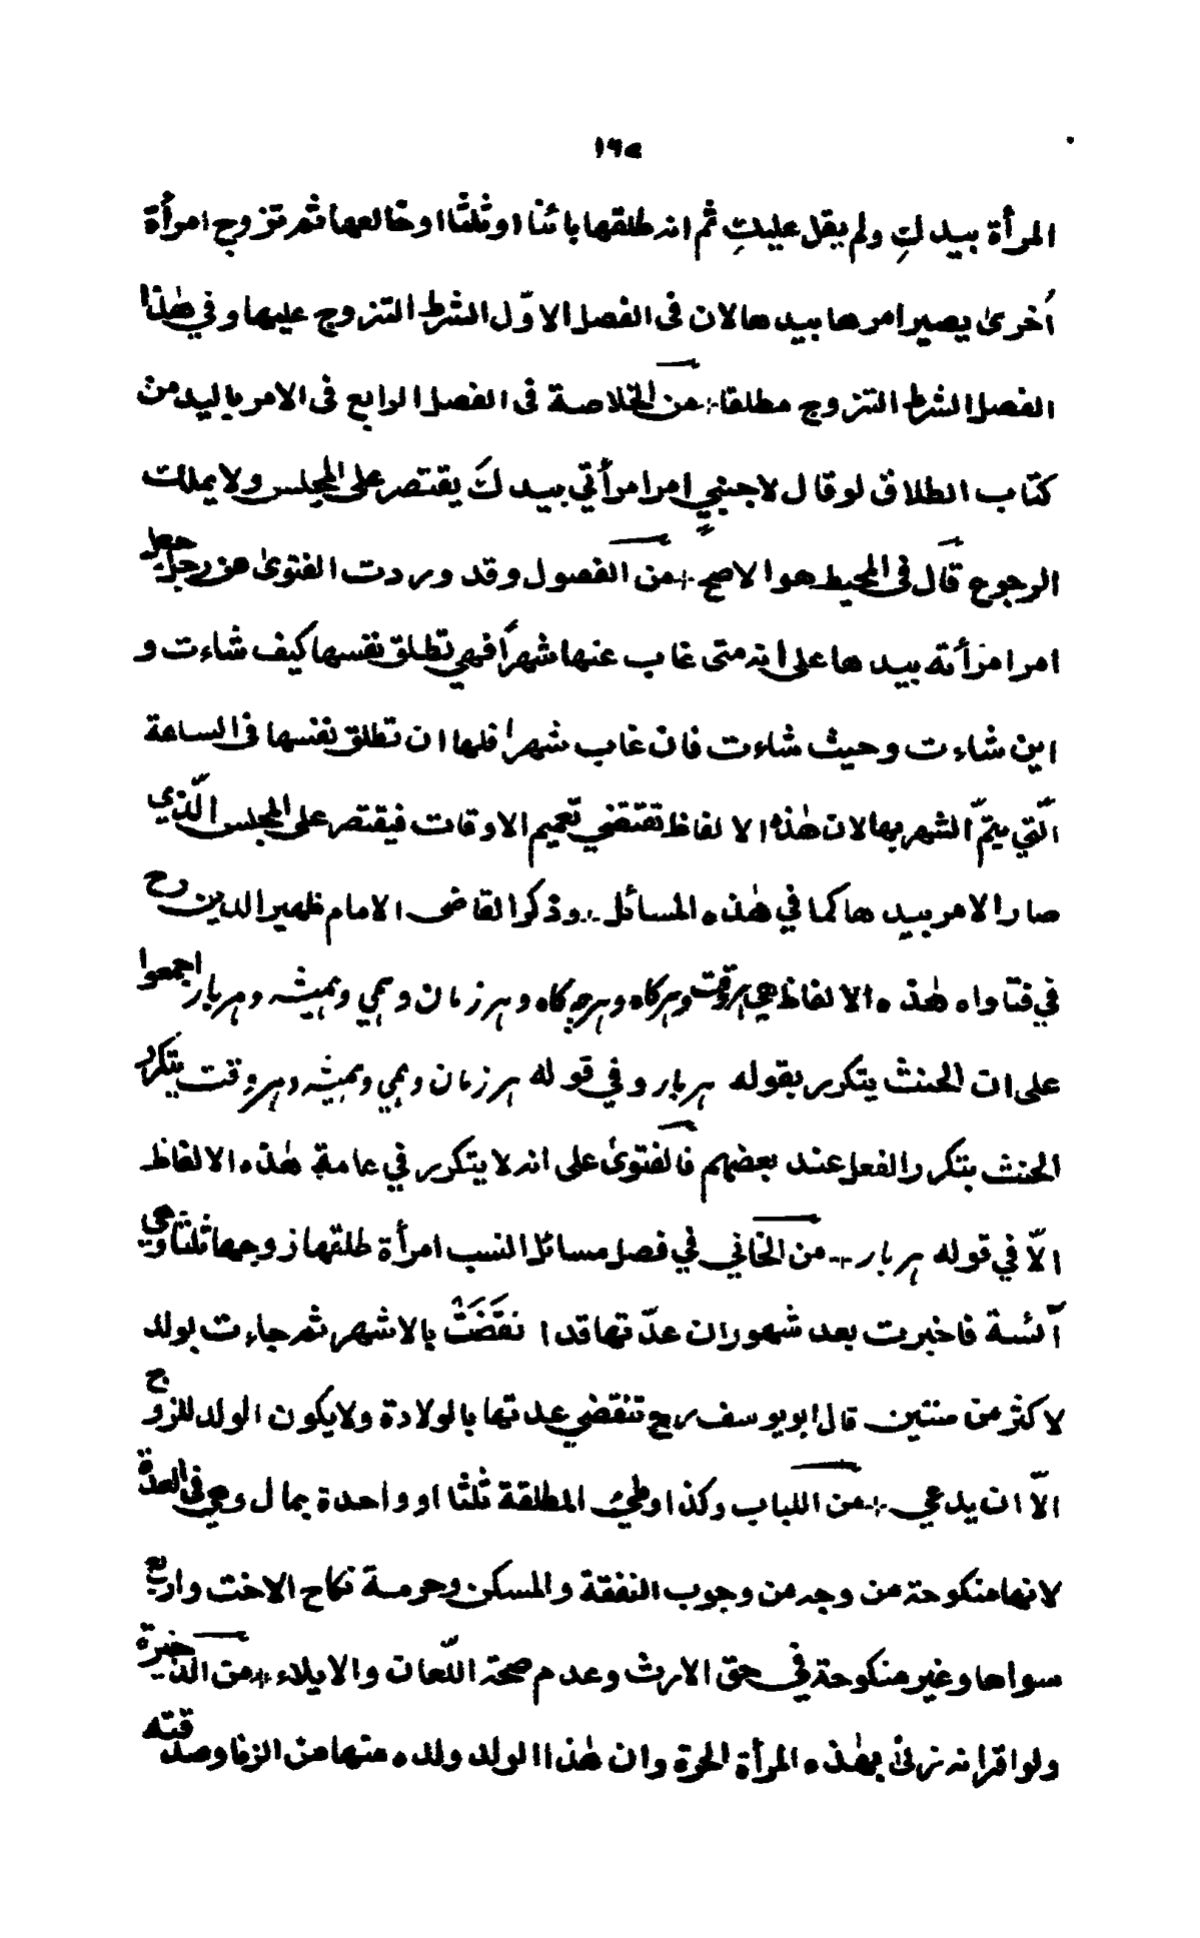 ١٦٥
المرأة بيدك ولم يقل عليك ثم انه طلقها بائنا او ثلثا او خالعها ثم تزوج امرأة
أخرى يصير امرها بيدها لان فى الفصل الاوّل الشرط التزوج عليها وفي هٰذا
الفصل الشرط التزوج مطلقا من الخلاصة فى الفصل الرابع فى الامر باليد من
كتاب الطلاق لو قال لاجنبيٍ امر امرأتي بيدكَ يقتصر على المجلس ولا يملك
الرجوع قال فى المحيط هو الاصح من الفصول وقد وردت الفتوى عن رجل جعل
امر امرأته بيدها على انه متى غاب عنها شهرًا فهي تطلق نفسها كيف شاءت و
اين شاءت وحيث شاءت فان غاب شهرا فلها ان تطلق نفسها فى الساعة
الّتي يتمّ الشهر بها لان هٰذه الالفاظ تقتضي تعميم الاوقات فيقتصر على المجلس الّذي
صار الامر بيدها كما في هٰذه المسائل وذكر القاضى الامام ظهير الدين رح
في فتاواه هٰذه الالفاظ هي هروقت وهركاه وهرچه كاه وهر زمان وهمي وهميشه وهربار اجمعوا
على ان الحنث يتكرر بقوله هربار وفي قوله هر زمان وهمي وهميشه وهروقت يتكرر
الحنث بتكرر الفعل عند بعضهم فالفتوى على انه لا يتكرر في عامة هٰذه الالفاظ
الّا في قوله هربار من الخاني في فصل مسائل النسب امرأة طلقها زوجها ثلثا وهي
آئسة فاخبرت بعد شهور ان عدّتها قد انقَضَتْ بالاشهر ثم جاءت بولد
لاكثر من سنتين قال ابو يوسف رح تنقضي عدتها بالولادة ولا يكون الولد للزوج
الّا ان يدعي من اللباب وكذا وطئ المطلقة ثلثا او واحدة بمال وهي فى العدة
لانها منكوحة من وجه من وجوب النفقة والمسكن وحرمة نكاح الاخت واربع
سواها وغير منكوحة في حق الارث وعدم صحة اللّعان والايلاء من الذخيرة
ولو اقر انه زنى بهٰذه المرأة الحرة وان هٰذا الولد ولده منها من الزنا وصدقته